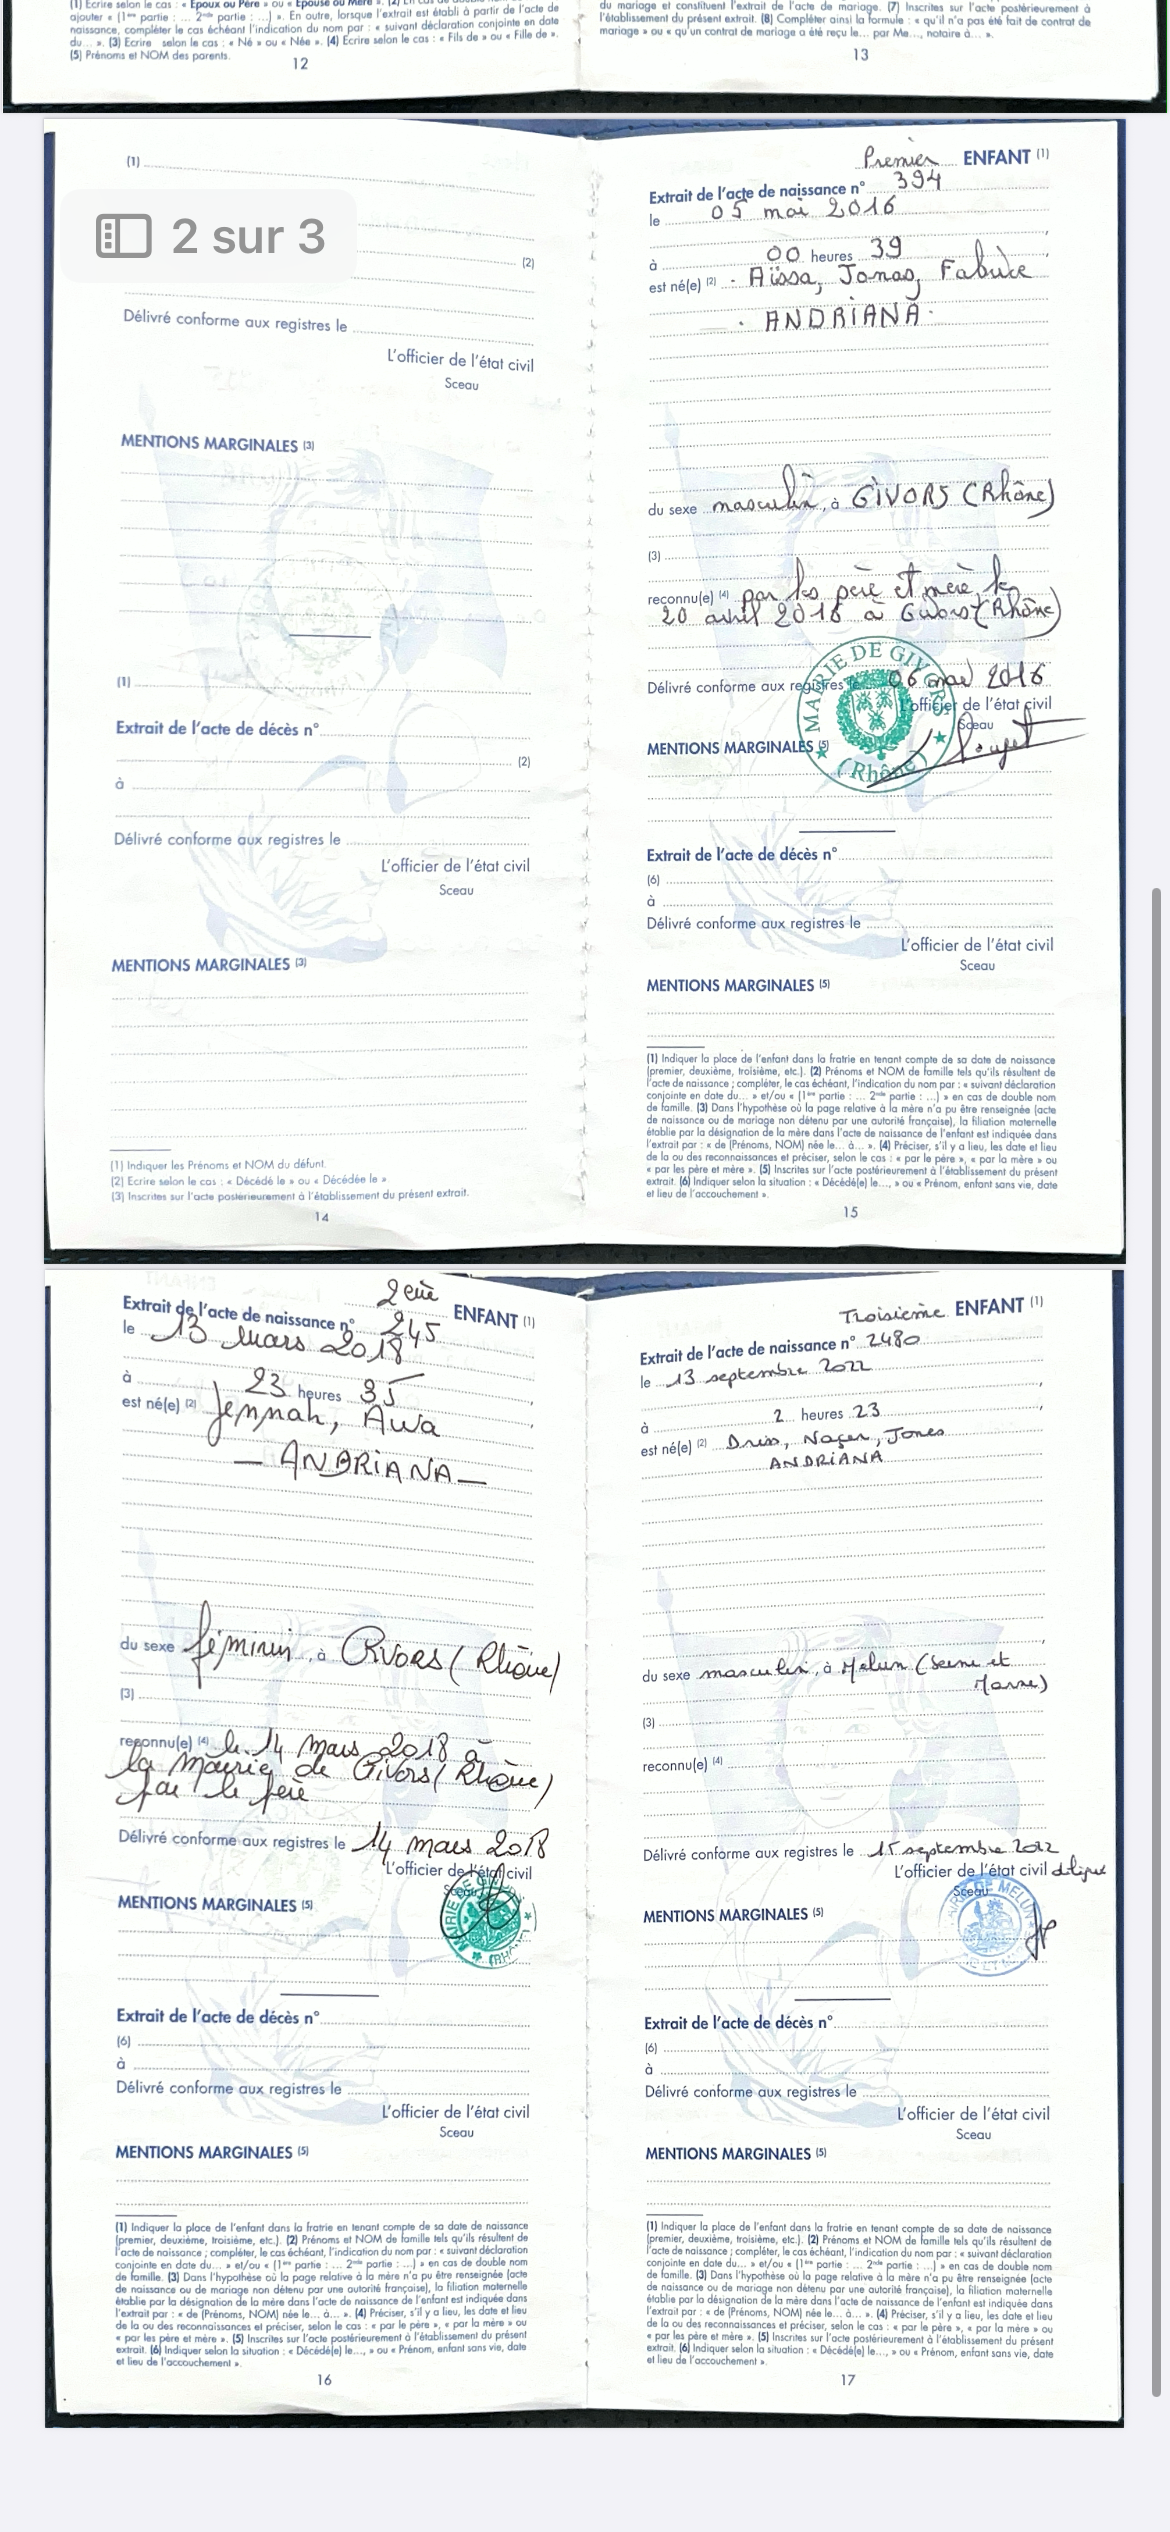 (1) Ecrire selon le cas : « Epoux ou Père » ou « Epouse ou Mère ». (2) En cas de double
ajouter « (1ère partie : ... 2nde partie : ...) ». En outre, lorsque l'extrait est établi à partir de l'acte de
naissance, compléter le cas échéant l'indication du nom par : « suivant déclaration conjointe en date
du... ». (3) Ecrire selon le cas : « Né » ou « Née ». (4) Ecrire selon le cas : « Fils de » ou « Fille de ».
(5) Prénoms et NOM des parents.
12
du mariage et constituent l'extrait de l'acte de mariage. (7) Inscrites sur l'acte postérieurement à
l'établissement du présent extrait. (8) Compléter ainsi la formule : « qu'il n'a pas été fait de contrat de
mariage » ou « qu'un contrat de mariage a été reçu le... par Me..., notaire à... ».
13
(1)
2 sur 3
(2)
Délivré conforme aux registres le
L'officier de l'état civil
Sceau
MENTIONS MARGINALES (3)
(1)
Extrait de l'acte de décès n°
(2)
à
Délivré conforme aux registres le
L'officier de l'état civil
Sceau
MENTIONS MARGINALES (3)
(1) Indiquer les Prénoms et NOM du défunt.
(2) Ecrire selon le cas : « Décédé le » ou « Décédée le ».
(3) Inscrites sur l'acte postérieurement à l'établissement du présent extrait.
14
Premier ENFANT (1)
Extrait de l'acte de naissance n° 394
le 05 mai 2016
à 00 heures 39
est né(e) (2) - Aïssa, Jonas, Fabrice
- ANDRIANA -
du sexe masculin, à GIVORS (Rhône)
(3)
reconnu(e) (4) par les père et mère le
20 avril 2016 à Givors (Rhône)
Délivré conforme aux registres le 06 mai 2016
L'officier de l'état civil
Sceau
MAIRIE DE GIVORS (Rhône)
MENTIONS MARGINALES (5)
Extrait de l'acte de décès n°
(6)
à
Délivré conforme aux registres le
L'officier de l'état civil
Sceau
MENTIONS MARGINALES (5)
(1) Indiquer la place de l'enfant dans la fratrie en tenant compte de sa date de naissance
(premier, deuxième, troisième, etc.). (2) Prénoms et NOM de famille tels qu'ils résultent de
l'acte de naissance ; compléter, le cas échéant, l'indication du nom par : « suivant déclaration
conjointe en date du... » et/ou « (1ère partie : ... 2nde partie : ...) » en cas de double nom
de famille. (3) Dans l'hypothèse où la page relative à la mère n'a pu être renseignée (acte
de naissance ou de mariage non détenu par une autorité française), la filiation maternelle
établie par la désignation de la mère dans l'acte de naissance de l'enfant est indiquée dans
l'extrait par : « de (Prénoms, NOM) née le... à... ». (4) Préciser, s'il y a lieu, les date et lieu
de la ou des reconnaissances et préciser, selon le cas : « par le père », « par la mère » ou
« par les père et mère ». (5) Inscrites sur l'acte postérieurement à l'établissement du présent
extrait. (6) Indiquer selon la situation : « Décédé(e) le..., » ou « Prénom, enfant sans vie, date
et lieu de l'accouchement ».
15
2eme ENFANT (1)
Extrait de l'acte de naissance n° 245
le 13 mars 2018
à 23 heures 35
est né(e) (2) Jennah, Awa
— ANDRIANA —
du sexe féminin, à GIVORS (Rhône)
(3)
reconnu(e) (4) le 14 mars 2018 à
la mairie de Givors (Rhône)
par le père
Délivré conforme aux registres le 14 mars 2018
L'officier de l'état civil
Sceau
MENTIONS MARGINALES (5)
Extrait de l'acte de décès n°
(6)
à
Délivré conforme aux registres le
L'officier de l'état civil
Sceau
MENTIONS MARGINALES (5)
(1) Indiquer la place de l'enfant dans la fratrie en tenant compte de sa date de naissance
(premier, deuxième, troisième, etc.). (2) Prénoms et NOM de famille tels qu'ils résultent de
l'acte de naissance ; compléter, le cas échéant, l'indication du nom par : « suivant déclaration
conjointe en date du... » et/ou « (1ère partie : ... 2nde partie : ...) » en cas de double nom
de famille. (3) Dans l'hypothèse où la page relative à la mère n'a pu être renseignée (acte
de naissance ou de mariage non détenu par une autorité française), la filiation maternelle
établie par la désignation de la mère dans l'acte de naissance de l'enfant est indiquée dans
l'extrait par : « de (Prénoms, NOM) née le... à... ». (4) Préciser, s'il y a lieu, les date et lieu
de la ou des reconnaissances et préciser, selon le cas : « par le père », « par la mère » ou
« par les père et mère ». (5) Inscrites sur l'acte postérieurement à l'établissement du présent
extrait. (6) Indiquer selon la situation : « Décédé(e) le..., » ou « Prénom, enfant sans vie, date
et lieu de l'accouchement ».
16
Troisième ENFANT (1)
Extrait de l'acte de naissance n° 2480
le 13 septembre 2022
à 2 heures 23
est né(e) (2) Driss, Naser, Jones
ANDRIANA
du sexe masculin, à Melun (Seine et
Marne)
(3)
reconnu(e) (4)
Délivré conforme aux registres le 15 septembre 2022
L'officier de l'état civil délégué
Sceau
MENTIONS MARGINALES (5)
Extrait de l'acte de décès n°
(6)
à
Délivré conforme aux registres le
L'officier de l'état civil
Sceau
MENTIONS MARGINALES (5)
(1) Indiquer la place de l'enfant dans la fratrie en tenant compte de sa date de naissance
(premier, deuxième, troisième, etc.). (2) Prénoms et NOM de famille tels qu'ils résultent de
l'acte de naissance ; compléter, le cas échéant, l'indication du nom par : « suivant déclaration
conjointe en date du... » et/ou « (1ère partie : ... 2nde partie : ...) » en cas de double nom
de famille. (3) Dans l'hypothèse où la page relative à la mère n'a pu être renseignée (acte
de naissance ou de mariage non détenu par une autorité française), la filiation maternelle
établie par la désignation de la mère dans l'acte de naissance de l'enfant est indiquée dans
l'extrait par : « de (Prénoms, NOM) née le... à... ». (4) Préciser, s'il y a lieu, les date et lieu
de la ou des reconnaissances et préciser, selon le cas : « par le père », « par la mère » ou
« par les père et mère ». (5) Inscrites sur l'acte postérieurement à l'établissement du présent
extrait. (6) Indiquer selon la situation : « Décédé(e) le..., » ou « Prénom, enfant sans vie, date
et lieu de l'accouchement ».
17